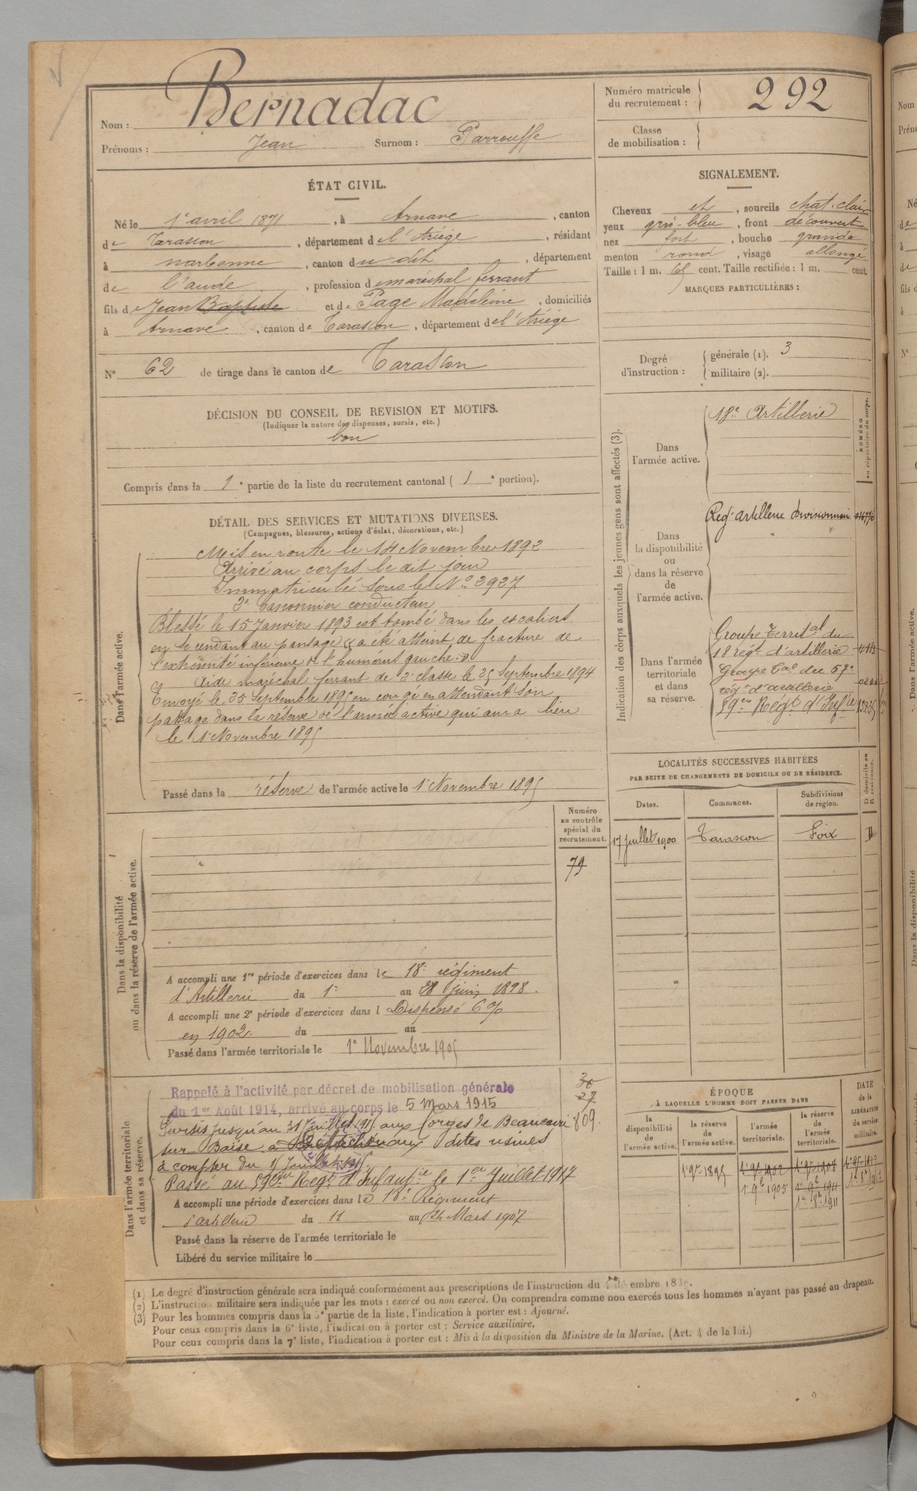 Nom : Bernadac
Prénoms : Jean Surnom : Parrouffe
Numéro matricule du recrutement : 292
Classe de mobilisation :
ÉTAT CIVIL.
Né le 1er avril 1871, à Arnave, canton
de Tarascon, département de l'Ariège, résidant
à Narbonne, canton du dit, département
de l'aude, profession de maréchal ferrant
fils de Jean Baptiste et de Page Madeleine, domiciliés
à Arnave, canton de Tarascon, département de l'Ariège
N° 62 de tirage dans le canton de Tarascon
SIGNALEMENT.
Cheveux et, sourcils chat. clair
yeux gris-bleu, front découvert
nez fort, bouche grande
menton rond, visage allongé
Taille : 1 m. 65 cent. Taille rectifiée : 1 m. cent.
MARQUES PARTICULIÈRES :
Degré d'instruction : générale (1). 3
militaire (2).
DÉCISION DU CONSEIL DE REVISION ET MOTIFS.
(Indiquer la nature des dispenses, sursis, etc.)
bon
Compris dans la 1e partie de la liste du recrutement cantonal (1e portion).
DÉTAIL DES SERVICES ET MUTATIONS DIVERSES.
(Campagnes, blessures, actions d'éclat, décorations, etc.)
Dans l'armée active.
Mis en route le 14 Novembre 1892
Arrivé au corps le dit jour
Immatriculé sous le N° 2927
2e Canonnier conducteur
Blessé le 15 Janvier 1893 est tombé dans les escaliers
en se rendant au pansage & a été atteint de fracture de
l'extrémité inférieure de l'humérus gauche.
Aide maréchal ferrant de 2e classe le 25 Septembre 1894
Envoyé le 25 Septembre 1895 en congé en attendant son
passage dans la réserve de l'armée active qui aura lieu
le 1er Novembre 1895
Passé dans la réserve de l'armée active le 1er Novembre 1895
Indication des corps auxquels les jeunes gens sont affectés (3).
Dans l'armée active.
18e Artillerie
Dans la disponibilité ou dans la réserve de l'armée active.
Reg. artillerie divisionnaire
Dans l'armée territoriale et dans sa réserve.
Groupe territal du
18 régt d'artillerie
Groupe Tal du 57e
rég. d'artillerie
89e Régt d'Infie
LOCALITÉS SUCCESSIVES HABITÉES
PAR SUITE DE CHANGEMENTS DE DOMICILE OU DE RÉSIDENCE.
Dates. Communes. Subdivisions de région.
17 Juillet 1900 Tarascon Foix D
Numéro au contrôle spécial du recrutement.
79
Dans la disponibilité ou dans la réserve de l'armée active.
A accompli une 1re période d'exercices dans le 18e régiment
d'Artillerie du 1er au 28 Juin 1898.
A accompli une 2e période d'exercices dans l Dispensé 6 %
en 1902 du au
Passé dans l'armée territoriale le 1er Novembre 1905
Dans l'armée territoriale et dans sa réserve.
Rappelé à l'activité par décret de mobilisation générale
du 1er Août 1914, arrivé au corps le 5 Mars 1915
Sursis jusqu'au 31 Juillet aux forges de Beaucaire
sur Baïse, dites usines
à compter du
Passé au 89e Régt d'Infantie le 1er Juillet 1917
A accompli une période d'exercices dans le 18e Régiment
d'artillerie du 11 au Mars 1907
Passé dans la réserve de l'armée territoriale le
Libéré du service militaire le
109
ÉPOQUE
À LAQUELLE L'HOMME DOIT PASSER DANS
la disponibilité de l'armée active. la réserve de l'armée active. l'armée territoriale. la réserve de l'armée territoriale.
DATE de la LIBÉRATION du service militaire.
(1) Le degré d'instruction générale sera indiqué conformément aux prescriptions de l'instruction du
(2) L'instruction militaire sera indiquée par les mots : exercé ou non exercé. On comprendra comme non exercés tous les hommes n'ayant pas passé au drapeau.
(3) Pour les hommes compris dans la 5e partie de la liste, l'indication à porter est : Ajourné.
Pour ceux compris dans la 6e liste, l'indication à porter est : Service auxiliaire.
Pour ceux compris dans la 7e liste, l'indication à porter est : Mis à la disposition du Ministre de la Marine. (Art. 4 de la loi.)